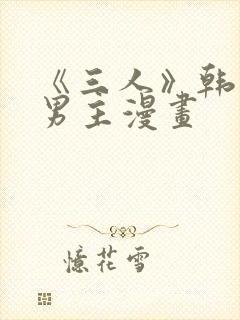 《三人》韩
男主漫畫
憶花雪